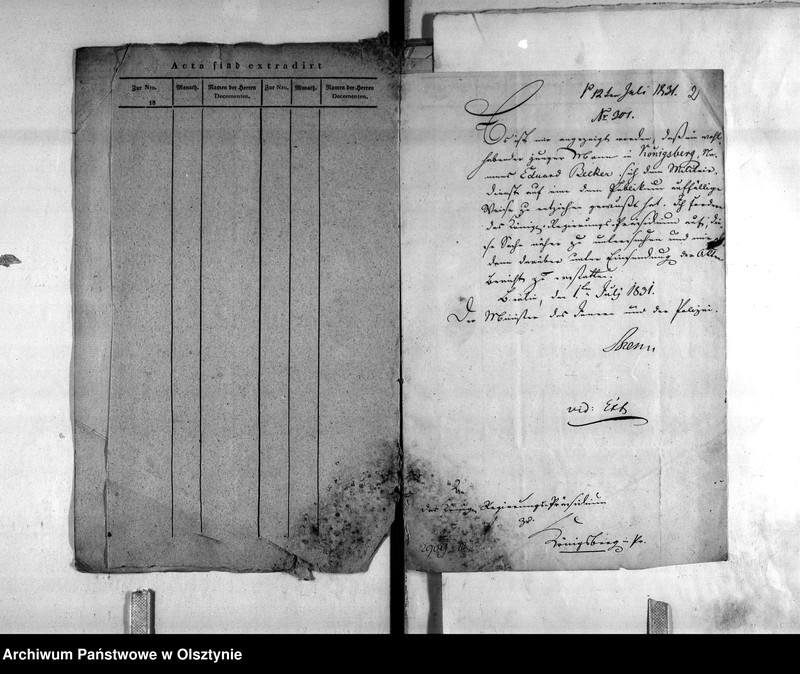 Acta sind extradirt
Zur Nro. Monath. Namen der Herren Decernenten. Zur Nro. Monath. Namen der Herren Decernenten.
18
pr 12ten Juli 1831. 2
No 301.
Es ist mir angezeigt worden, daß ein wohl-
habender junger Mann in Königsberg, Na-
mens Eduard Becker sich dem Militair-
dienst auf eine dem Publikum auffällige
Weise zu entziehen gewußt hat. Ich fordere
das Königl. Regierungs-Präsidium auf, die-
se Sache näher zu untersuchen und mir
dem darüber unter Einsendung der Akten
Bericht zu erstatten.
Berlin, den 1ten Julj 1831.
Der Minister des Innern und der Polizei.
Brenn
vid:
An
das Königl. Regierungs-Präsidium
zu
Königsberg i. Pr.
2909
Archiwum Państwowe w Olsztynie